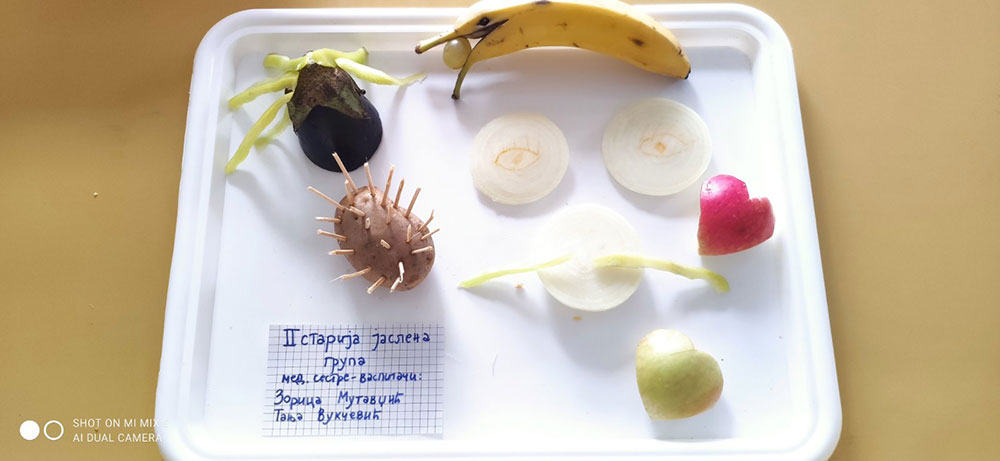 II старија јаслена
група
мед. сестре-васпитачи:
Зорица Мутавџић
Тања Вукчевић
SHOT ON MI MIX
AI DUAL CAMERA